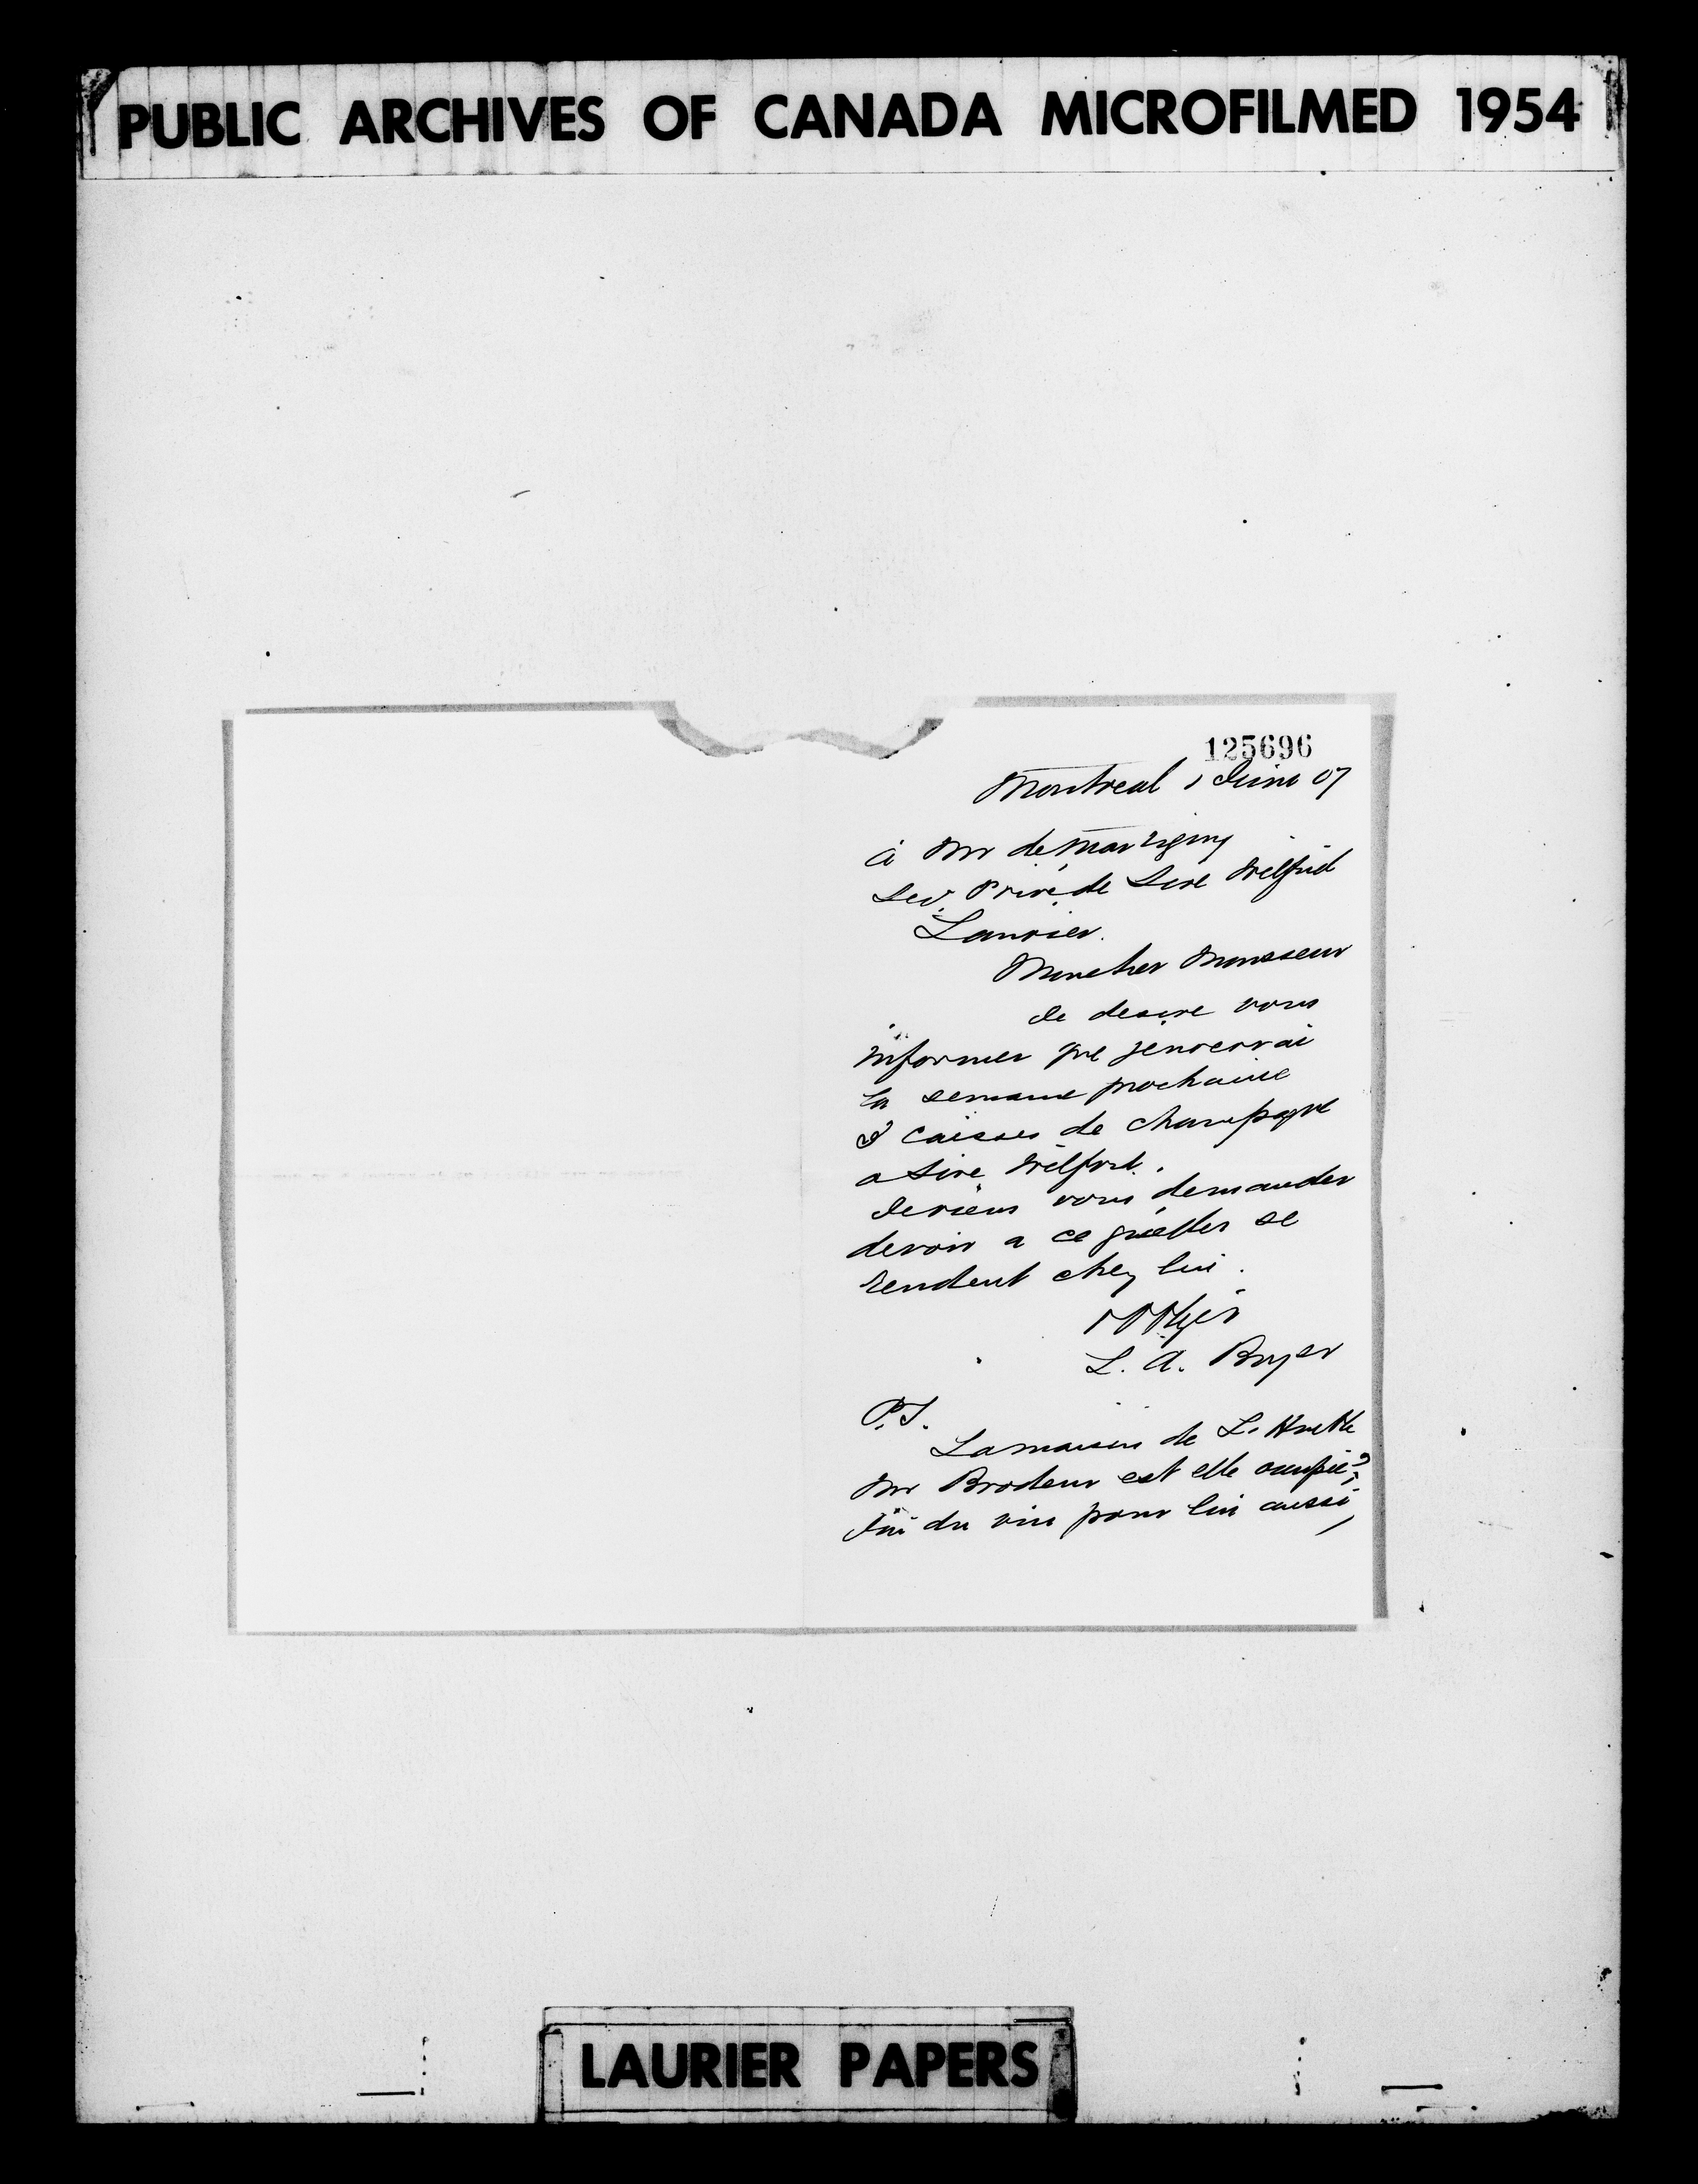 PUBLIC ARCHIVES OF CANADA MICROFILMED 1954
125696
Montreal 1 Juin 07
à Mr de Martigny
Sec. Privé de Sire Wilfrid
Laurier.
Mon cher Monsieur
Je desire vous
informer que jenverrai
la semaine prochaine
caisses de Champagne
a Sire Wilfrid.
Je viens vous demander
de voir a ce qu'elles se
rendent chez lui.
L. A. Boyer
P.S.
La maison de L.
Mr Brodeur est elle occupée?
J'ai du vin pour lui aussi,
LAURIER PAPERS